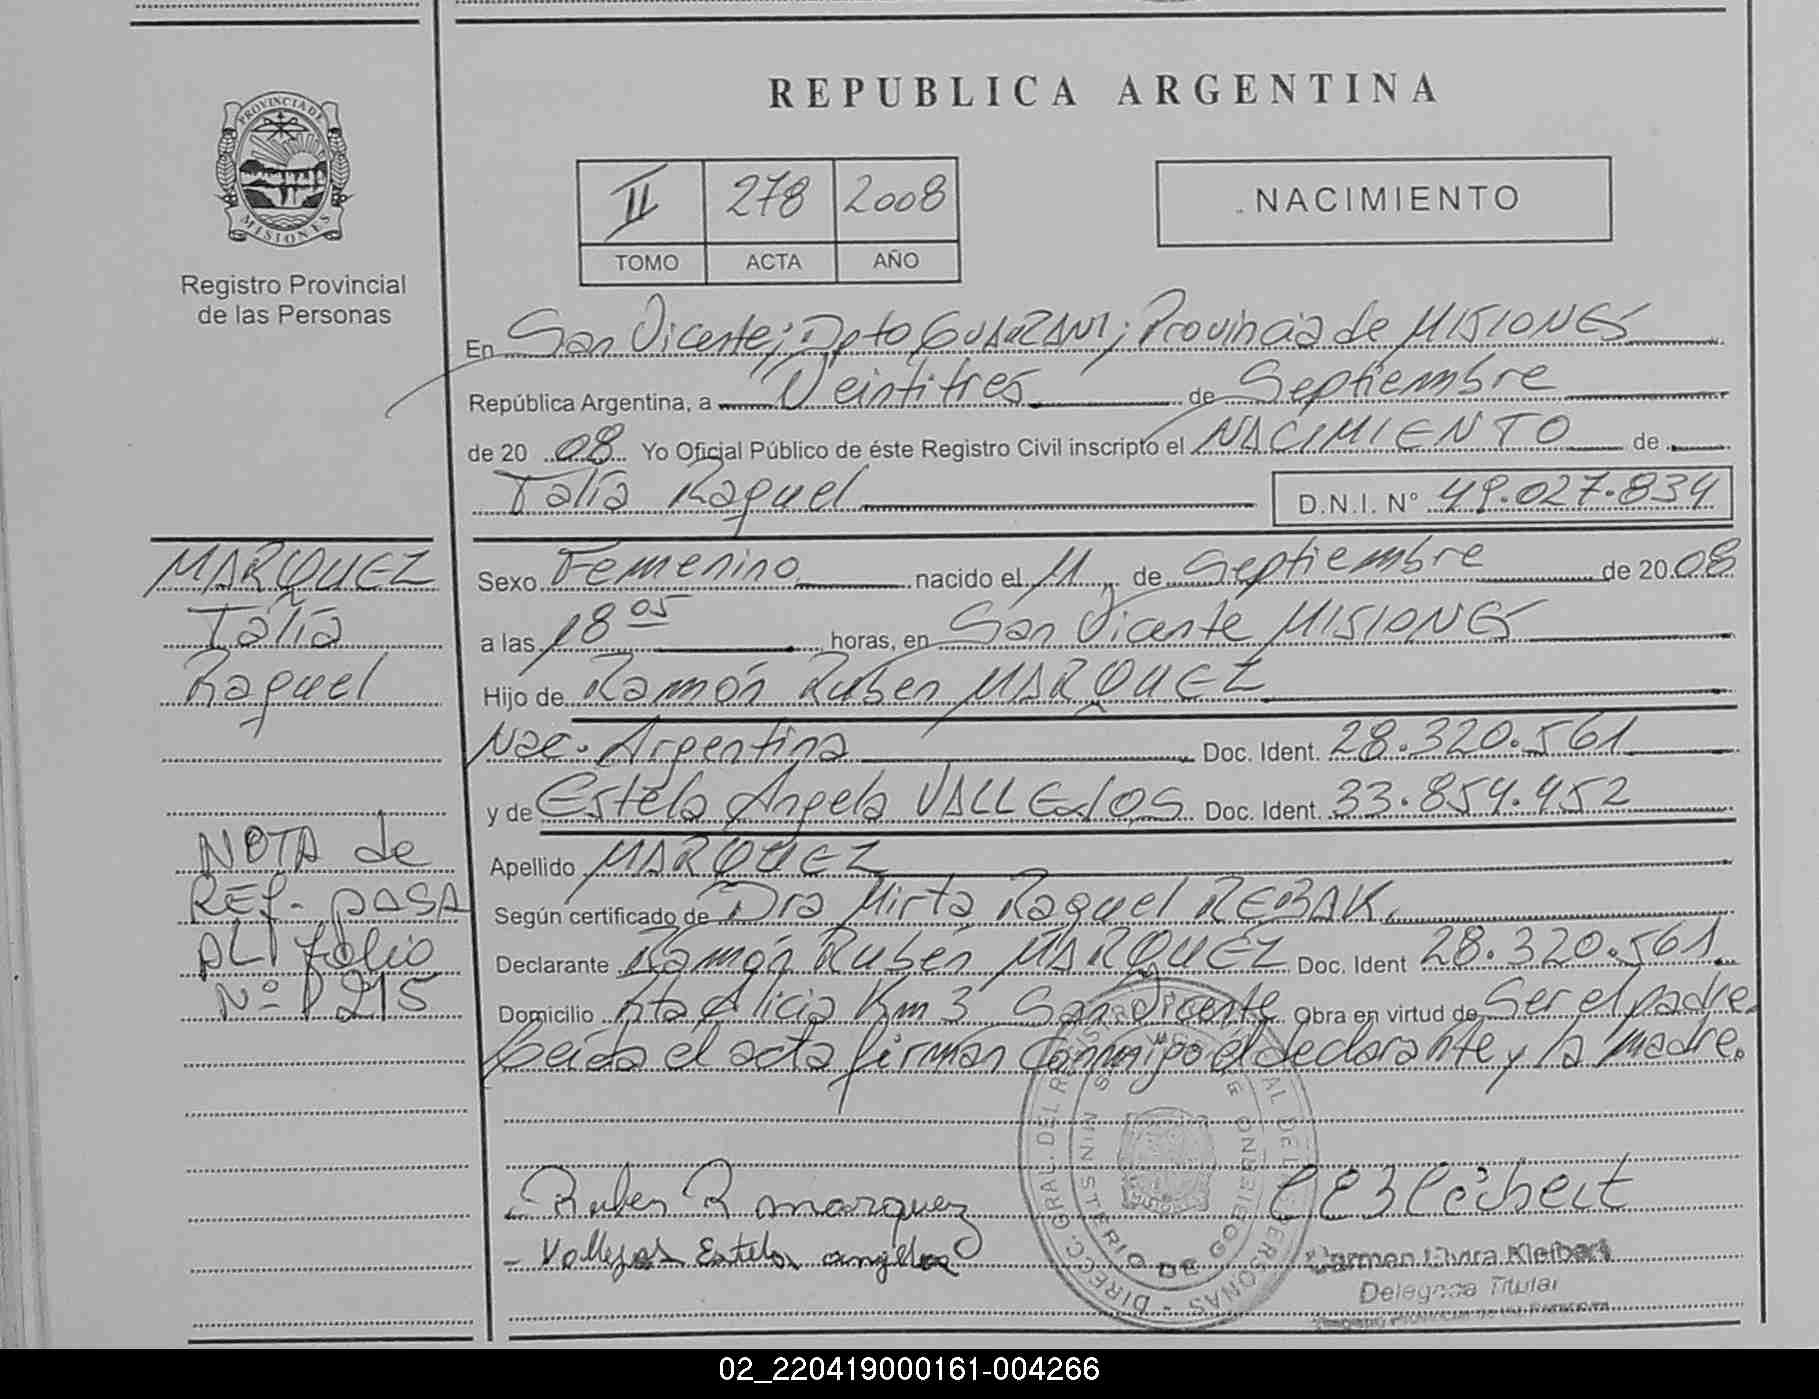 REPUBLICA ARGENTINA
PROVINCIA DE
MISIONES
Registro Provincial
de las Personas
II 278 2008
TOMO ACTA AÑO
NACIMIENTO
En San Vicente; Dpto GUARANI; Provincia de MISIONES
República Argentina, a Veintitres de Septiembre
de 20 08 Yo Oficial Público de éste Registro Civil inscripto el NACIMIENTO de
Talía Raquel D.N.I. N° 49.027.834
MARQUEZ
Talía
Raquel
Sexo Femenino nacido el 11 de Septiembre de 20 08
a las 18 05 horas, en San Vicente MISIONES
Hijo de Ramón Ruben MARQUEZ
Nac. Argentina Doc. Ident. 28.320.561
y de Estela Angela VALLEJOS Doc. Ident. 33.854.452
Apellido MARQUEZ
Según certificado de Dra Mirta Raquel REBAK.
Declarante Ramón Rubén MARQUEZ Doc. Ident 28.320.561
Domicilio Rta Alicia Km 3 San Vicente Obra en virtud de Ser el padre.
Leida el acta firman conmigo el declarante y la madre.
NOTA de
REF. PASA
AL folio
Nº 215
- Ruben R marquez
- Vallejos Estela angela
DIRECC. GRAL. DEL PERSONAS
MINISTERIO DE GOBIERNO
Carmen Elvira Kleibert
Delegada Titular
02_220419000161-004266